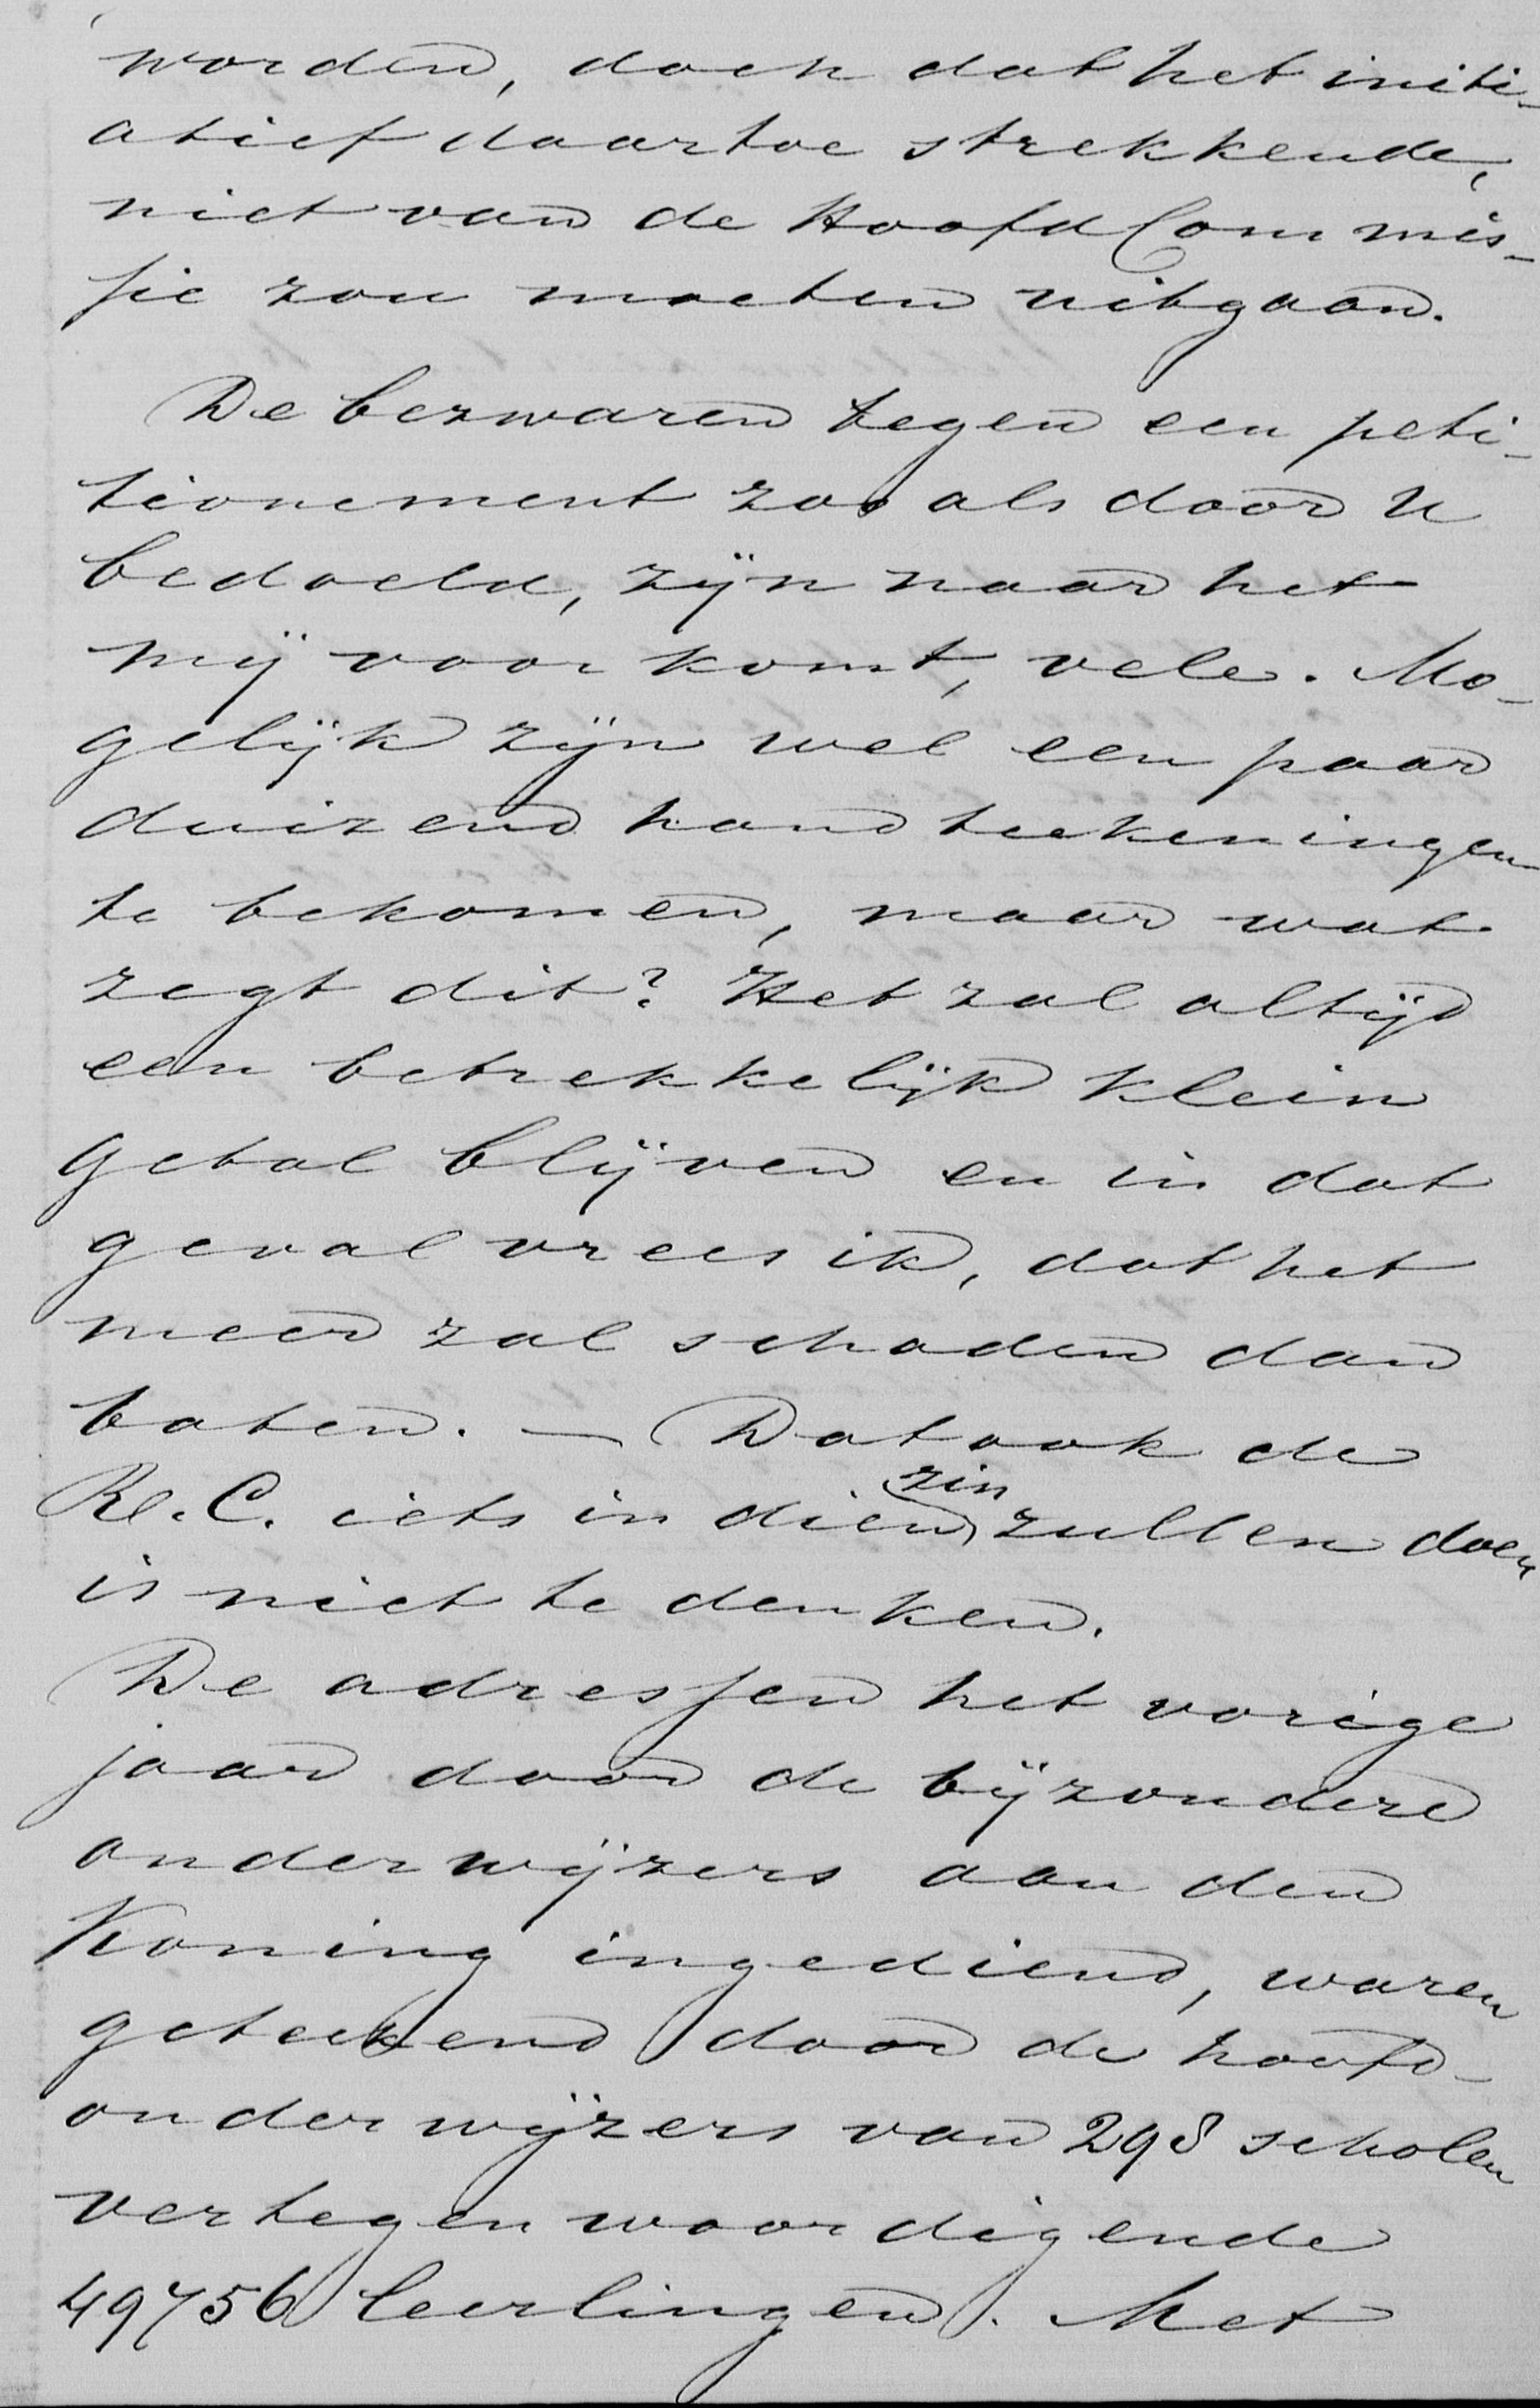 worden, doch dat het initi-
atief daartoe strekkende,
niet van de HoofdCommis-
sie zou moeten uitgaan.
De bezwaren tegen een peti-
tionement zoo als door U
bedoeld, zijn naar het
mij voorkomt, vele. Mo-
gelijk zijn wel een paar
duizend handteekeningen
te bekomen, maar wat
zegt dit? Het zal altijd
een betrekkelijk klein
getal blijven en in dat
geval vrees ik, dat het
meer zal schaden dan
baten. — Dat ook de
R.C. iets in dien zin zullen doen
is niet te denken.
De adressen het vorige
jaar door de bijzondere
onderwijzers aan den
Koning ingediend, waren
geteekend door de hoofd-
onderwijzers van 298 scholen
vertegenwoordigende
49756 leerlingen. Met